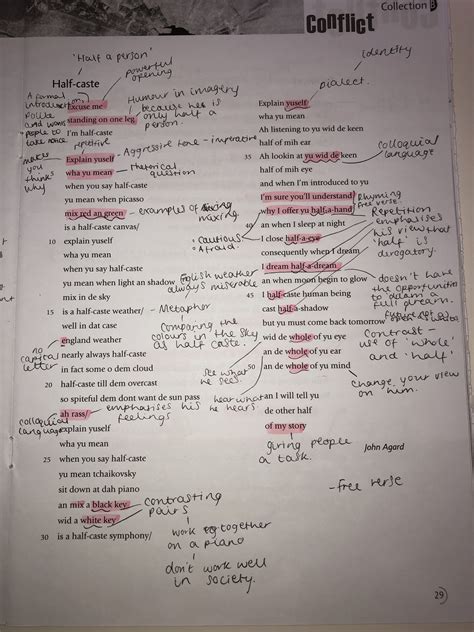 Collection
Conflict
'Half a person'
identity
powerful opening
dialect.
Half-caste
A formal introduction
Polite and wants people to take notice
Excuse me
standing on one leg
I'm half-caste
Humour in imagery because he is only half a person.
repetitive
Explain yuself
wha yu mean
Aggressive tone - imperative
Rhetorical question
makes you think why
when you say half-caste
yu mean when picasso
mix red an green
- examples of mixing
is a half-caste canvas/
10 explain yuself
wha yu mean
when yu say half-caste
yu mean when light an shadow
mix in de sky
English weather always miserable
15 is a half-caste weather/
- Metaphor
well in dat case
england weather
no capital letter
nearly always half-caste
in fact some o dem cloud
Comparing the colours in the sky as half caste.
20 half-caste till dem overcast
so spiteful dem dont want de sun pass
ah rass/
- emphasises his feelings
colloquial language
explain yuself
wha yu mean
25 when yu say half-caste
yu mean tchaikovsky
sit down at dah piano
an mix a black key
wid a white key
30 is a half-caste symphony/
contrasting pairs
work together on a piano
don't work well in society.
Explain yuself
wha yu mean
Ah listening to yu wid de keen
half of mih ear
35 Ah lookin at yu wid de keen
colloquial language
half of mih eye
and when I'm introduced to yu
I'm sure you'll understand
why I offer yu half-a-hand
Rhyming
free verse
40 an when I sleep at night
I close half-a-eye
cautious
Afraid.
Repetition emphasises his view that 'half' is derogatory.
consequently when I dream
I dream half-a-dream
an when moon begin to glow
doesn't have the opportunities to dream a full dream.
45 I half-caste human being
cast half-a-shadow
but yu must come back tomorrow
wid de whole of yu eye
an de whole of yu ear
an de whole of yu mind
Contrast - use of 'whole' and 'half'
see what he sees.
hear what he hears
change your view on him.
an I will tell yu
de other half
of my story
giving people a task.
John Agard
- free verse
29